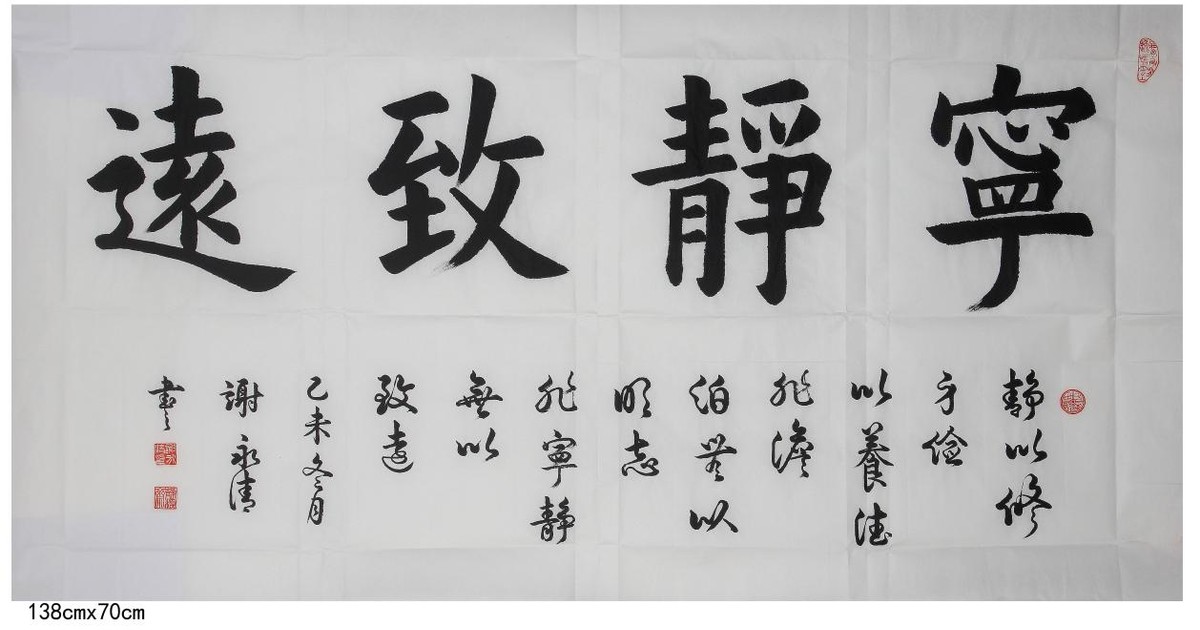 寧靜致遠
靜以修
身儉
以養德
非澹
泊無以
明志
非寧静
無以
致遠
乙未冬月
謝永清
書之
138cmx70cm